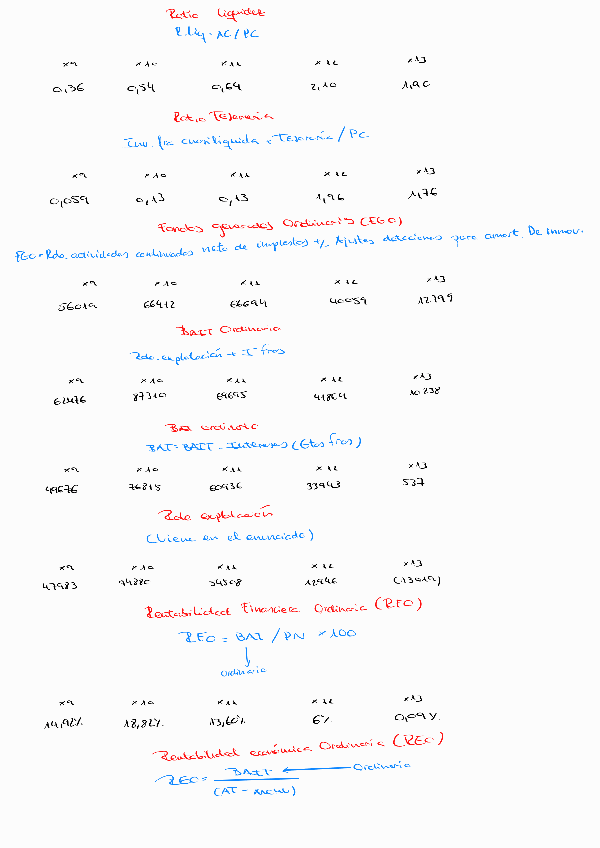 Ratio liquidez
R.liq = AC / PC
x9 x10 x11 x12 x13
0,36 0,54 0,64 2,10 1,90
Ratio Tesorería
Inv. fra cuasiliquida + Tesorería / PC
x9 x10 x11 x12 x13
0,059 0,13 0,13 1,96 1,76
Fondos generados Ordinarios (FGO)
FGO = Rdo. actividades continuadas neto de impuestos +/- Ajustes dotaciones para amort. De inmov.
x9 x10 x11 x12 x13
56019 66412 66694 40059 12.799
BAIT Ordinario
Rdo. explotación + I. fros
x9 x10 x11 x12 x13
62476 87310 69695 41864 10238
ordinario
BAT = BAIT - Intereses (Gtos fros)
x9 x10 x11 x12 x13
49676 76815 60936 33943 537
Rdo explotación
(Viene en el enunciado)
x9 x10 x11 x12 x13
47983 74880 54508 12946 (13019)
Rentabilidad Financiera Ordinaria (RFO)
RFO = BAT / PN x 100
ordinario
x9 x10 x11 x12 x13
14,92% 18,82% 13,60% 6% 0,09%
Rentabilidad económica Ordinaria (REO)
REO = BAIT Ordinario
(AT -